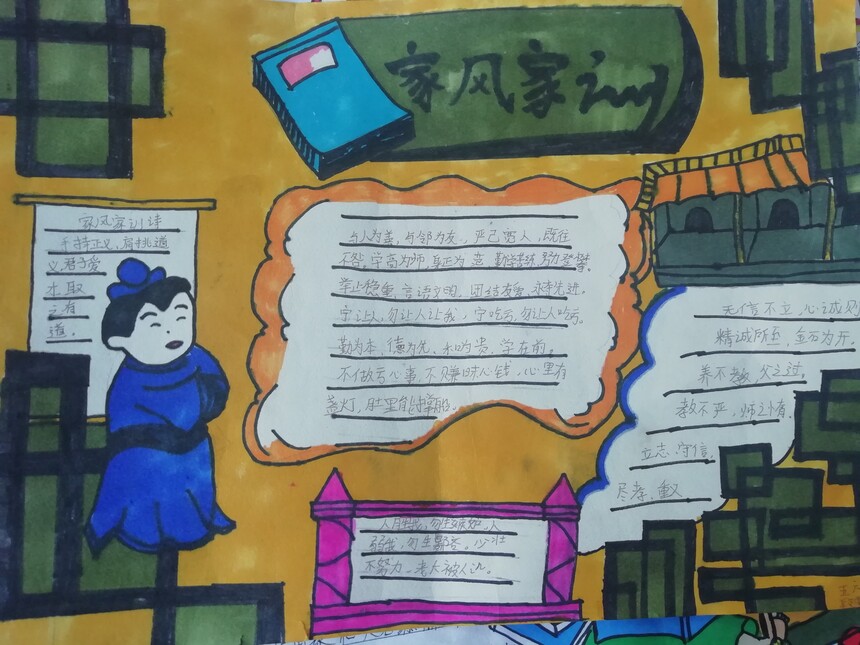 家风家训
家风家训诗
手持正义，肩挑道
义，君子爱
才，取
之有
道。
与人为善，与邻为友，严己宽人，既往
不咎，学高为师，身正为范，勤学苦练，努力登攀。
举止稳重，言语文明，团结友爱，永争先进。
宁让人，勿让人让我，宁吃亏，勿让人吃亏。
勤为本，德为先，和为贵，学在前。
不做亏心事，不赚昧心钱，心里有
盏灯，肚里能撑船。
无信不立，心诚则
精诚所至，金石为开。
养不教，父之过，
教不严，师之惰。
立志，守信，
尽孝，重义
人胜我，勿生嫉妒，人
弱我，勿生鄙吝。少壮
不努力，老大被人沉。